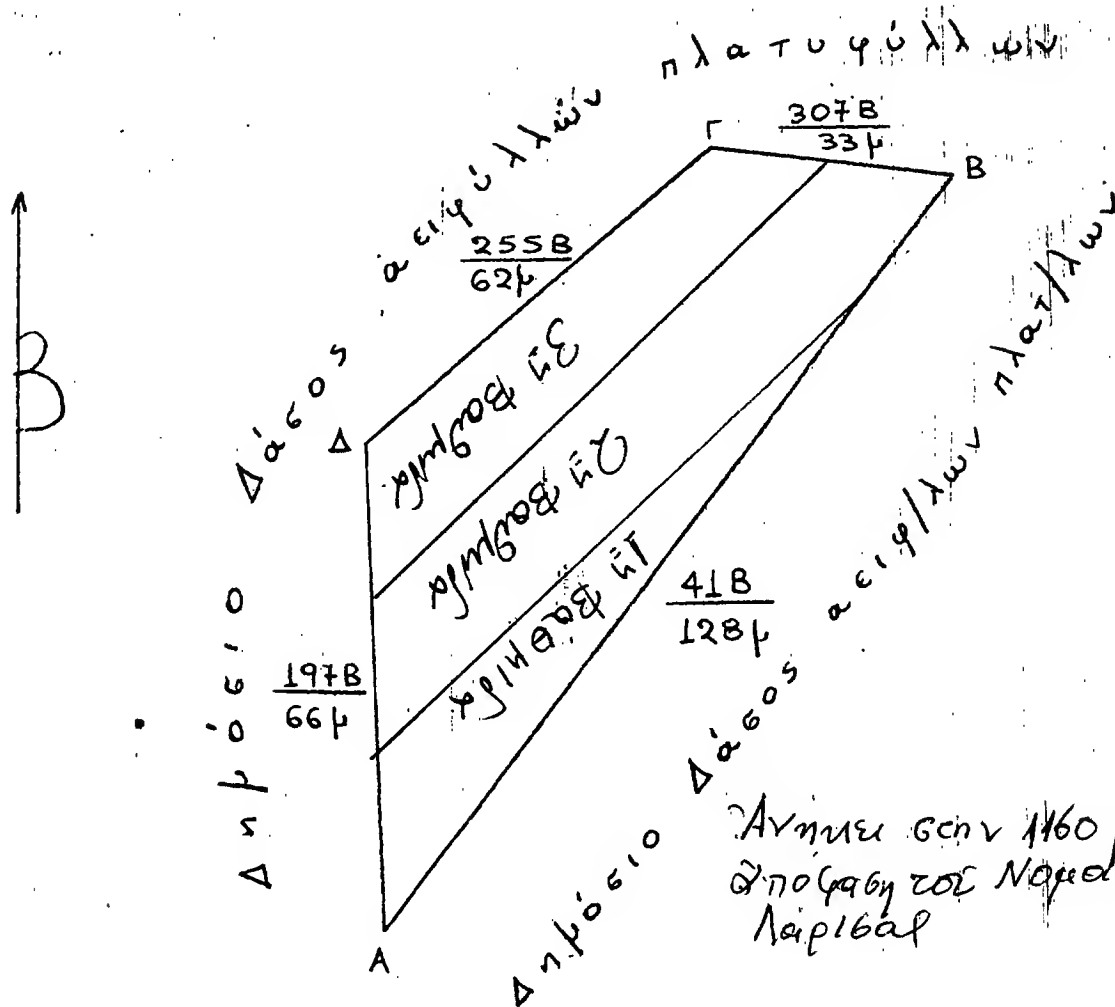 Δημόσιο Δάσος ἀειφύλλων πλατυφύλλων
Γ
307Β
33μ
Β
255Β
62μ
Δ
3η Βαθμίδα
2η Βαθμίδα
1η Βαθμίδα
Β
197Β
66μ
41Β
128μ
Α
Δημόσιο Δάσος αειφ/λων πλατ/λων
Ἀνήκει στην 1160/
ἀπόφαση τοῦ Νομα
Λαρίσας